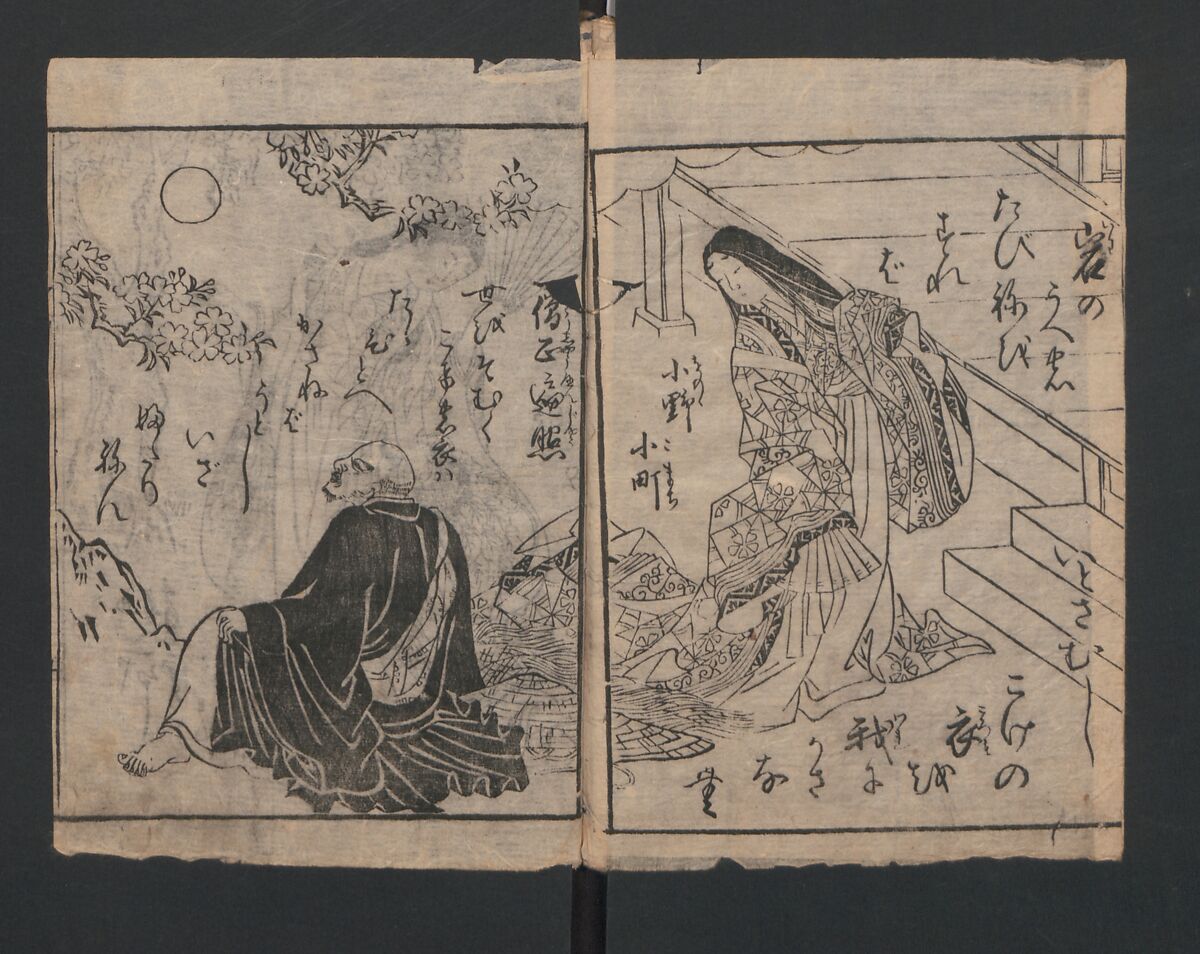 岩の
うへに
たびねを
すれ
ば
いとさむし
こけの
衣
を
我に
かさ
な
む
小野
小町
僧正遍照
世をそむく
こけの衣は
たゞ
ひとへ
かさねば
うとし
いざ
ふたり
ねん